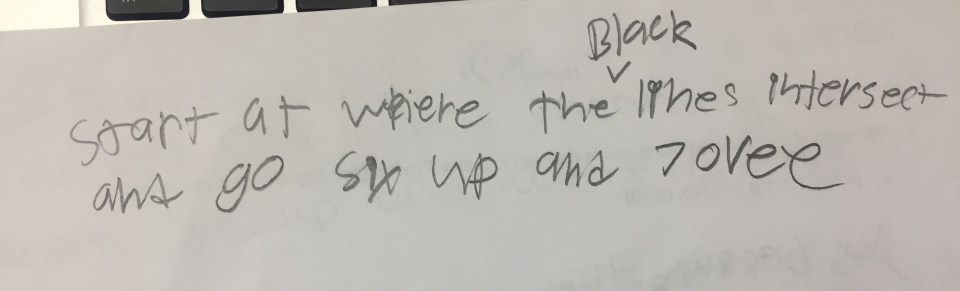 Start at where the Black lines intersect
and go six up and 7 ovee